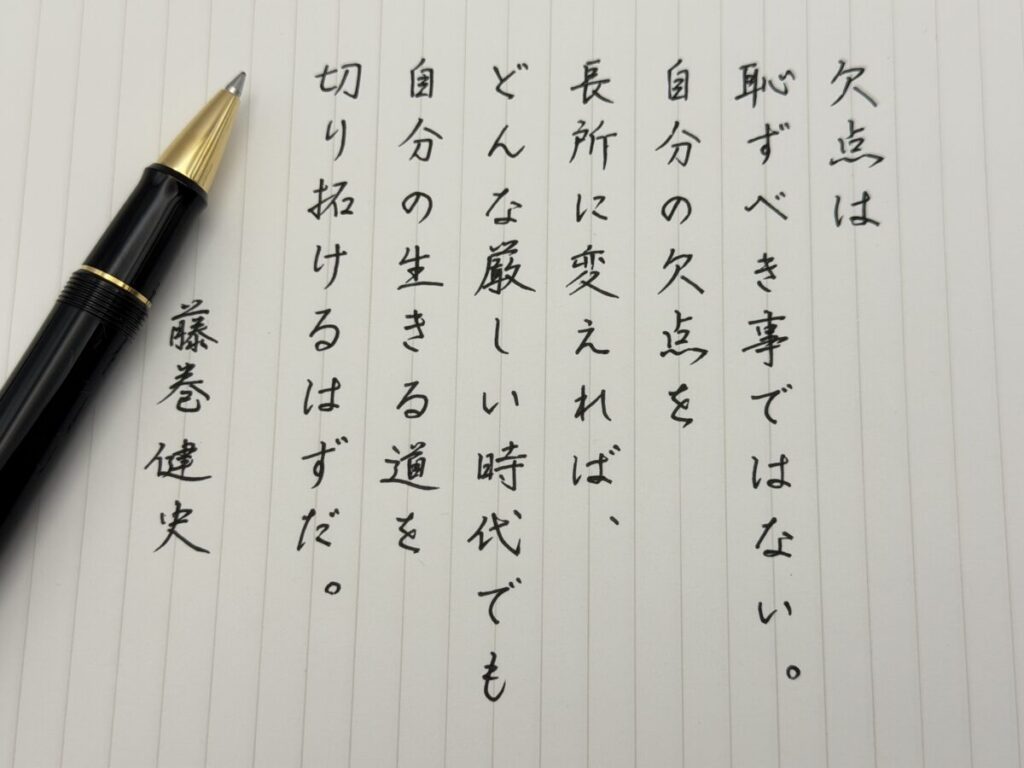 欠点は
恥ずべき事ではない。
自分の欠点を
長所に変えれば、
どんな厳しい時代でも
自分の生きる道を
切り拓けるはずだ。
藤巻健史